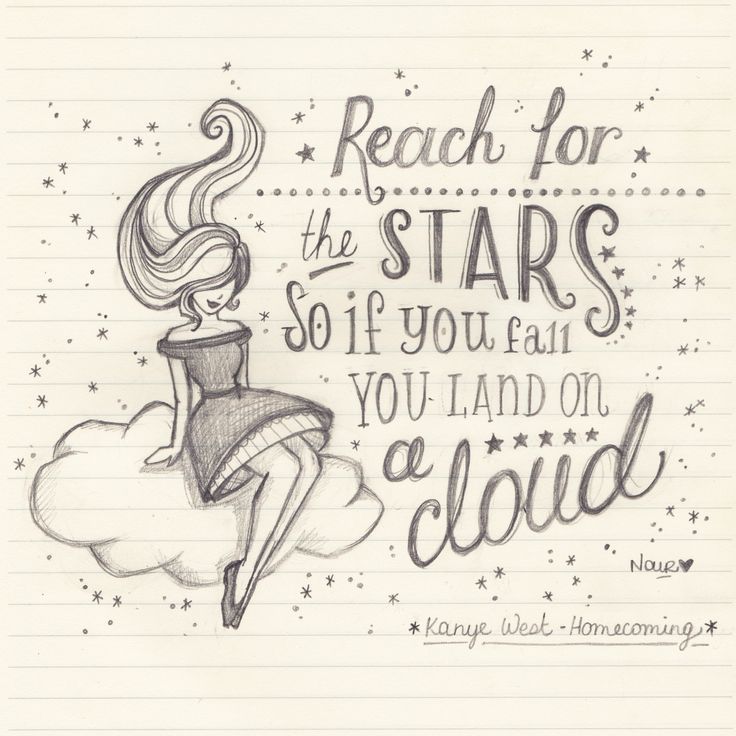 Reach for
the STARS
So if you fall
YOU LAND ON
a cloud
Nour
*Kanye West - Homecoming*